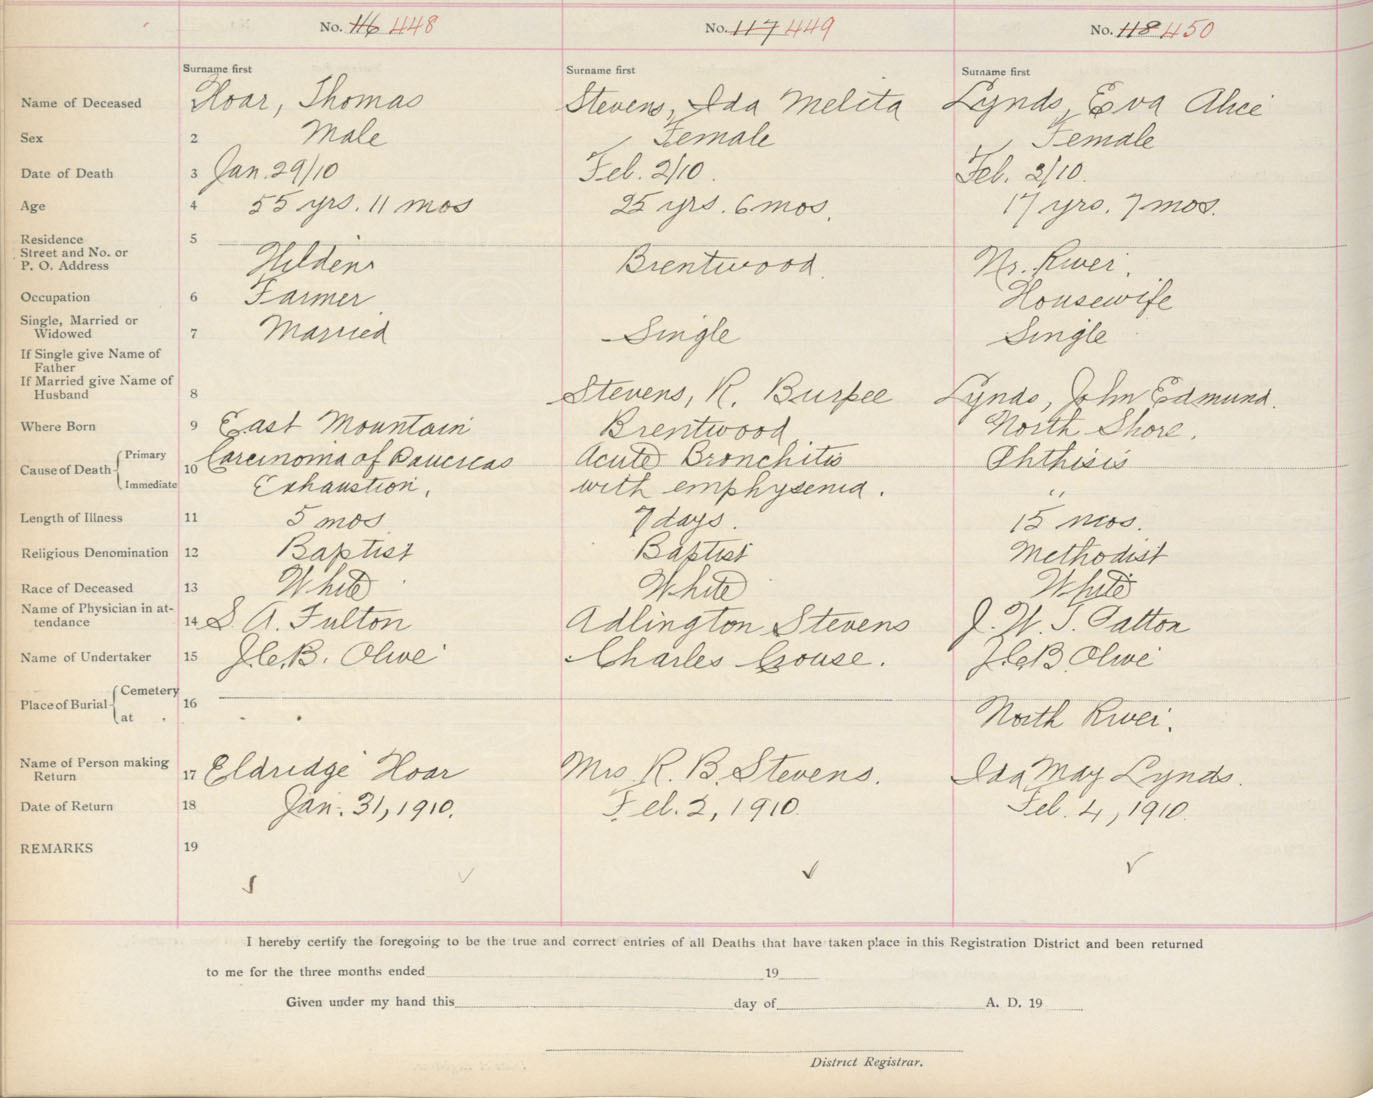 No. 116 448 No. 117 449 No. 118 450
Surname first Surname first Surname first
Name of Deceased Hoar, Thomas Stevens, Ida Melita Lynds, Eva Alice
Sex 2 Male Female Female
Date of Death 3 Jan. 29/10 Feb. 2/10. Feb. 2/10.
Age 4 55 yrs. 11 mos 25 yrs. 6 mos. 17 yrs. 7 mos.
Residence 5
Street and No. or
P. O. Address Hilden Brentwood. Nr. River.
Occupation 6 Farmer Housewife
Single, Married or
Widowed 7 Married Single Single
If Single give Name of
Father
If Married give Name of
Husband 8 Stevens, R. Burpee Lynds, John Edmund.
Where Born 9 East Mountain Brentwood North Shore.
Cause of Death Primary 10 Carcinoma of Pancreas Acute Bronchitis Phthisis
Immediate Exhaustion. with emphysema. "
Length of Illness 11 5 mos 7 days. 15 mos.
Religious Denomination 12 Baptist Baptist Methodist
Race of Deceased 13 White White White
Name of Physician in at-
tendance 14 S. A. Fulton Adlington Stevens J. W. T. Patton
Name of Undertaker 15 J.C.B. Olive Charles Crouse. J.C.B. Olive
Place of Burial Cemetery 16
at North River.
Name of Person making
Return 17 Eldridge Hoar Mrs R. B. Stevens. Ida May Lynds.
Date of Return 18 Jan. 31, 1910. Feb. 2, 1910. Feb. 4, 1910.
REMARKS 19
I hereby certify the foregoing to be the true and correct entries of all Deaths that have taken place in this Registration District and been returned
to me for the three months ended 19
Given under my hand this day of A. D. 19
District Registrar.